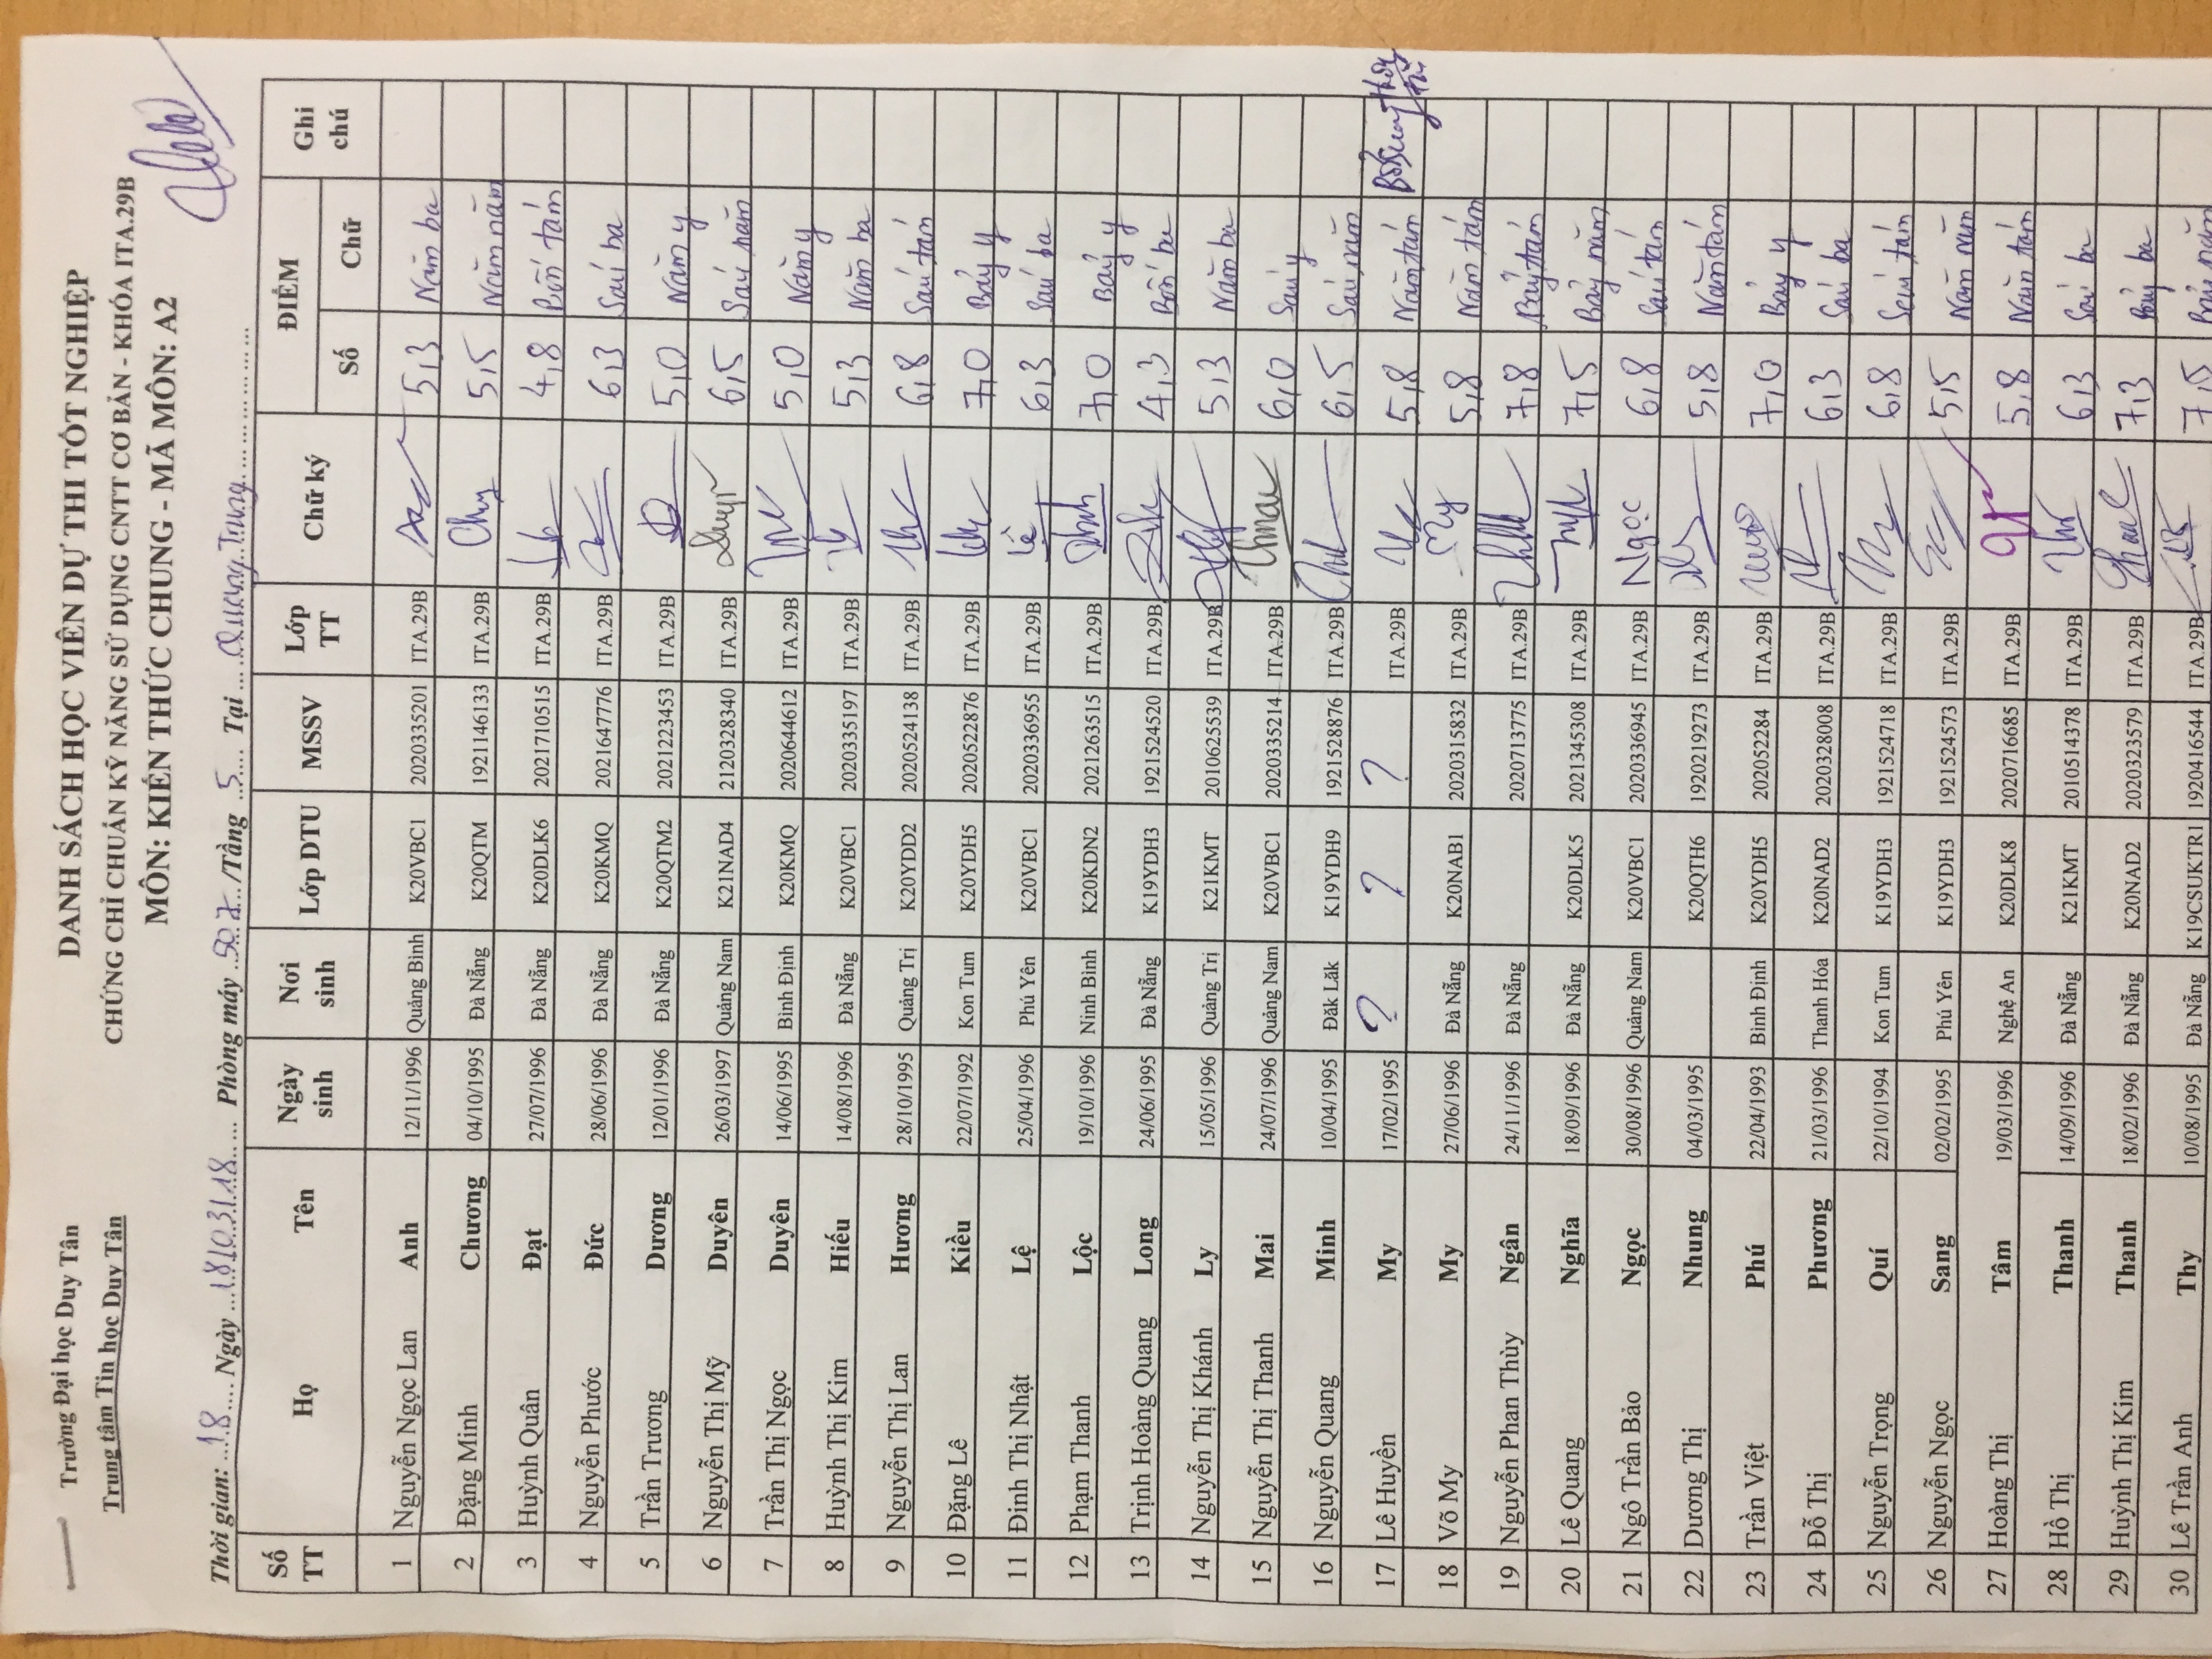 Trường Đại học Duy Tân
Trung tâm Tin học Duy Tân
DANH SÁCH HỌC VIÊN DỰ THI TỐT NGHIỆP
CHỨNG CHỈ CHUẨN KỸ NĂNG SỬ DỤNG CNTT CƠ BẢN - KHÓA ITA.29B
MÔN: KIẾN THỨC CHUNG - MÃ MÔN: A2
Thời gian: ...18.... Ngày ...18/03/18.... Phòng máy ..502../Tầng ..5.... Tại ...Quang Trung...
Số TT Họ Tên Ngày sinh Nơi sinh Lớp DTU MSSV Lớp TT Chữ ký ĐIỂM Số Chữ Ghi chú
1 Nguyễn Ngọc Lan Anh 12/11/1996 Quảng Bình K20VBC1 2020335201 ITA.29B 5,3 Năm ba
2 Đặng Minh Chương 04/10/1995 Đà Nẵng K20QTM 1921146133 ITA.29B 5,5 Năm năm
3 Huỳnh Quân Đạt 27/07/1996 Đà Nẵng K20DLK6 2021710515 ITA.29B 4,8 Bốn tám
4 Nguyễn Phước Đức 28/06/1996 Đà Nẵng K20KMQ 2021647776 ITA.29B 6,3 Sáu ba
5 Trần Trương Dương 12/01/1996 Đà Nẵng K20QTM2 2021223453 ITA.29B 5,0 Năm y
6 Nguyễn Thị Mỹ Duyên 26/03/1997 Quảng Nam K21NAD4 2120328340 ITA.29B 6,5 Sáu năm
7 Trần Thị Ngọc Duyên 14/06/1995 Bình Định K20KMQ 2020644612 ITA.29B 5,0 Năm y
8 Huỳnh Thị Kim Hiếu 14/08/1996 Đà Nẵng K20VBC1 2020335197 ITA.29B 5,3 Năm ba
9 Nguyễn Thị Lan Hương 28/10/1995 Quảng Trị K20YDD2 2020524138 ITA.29B 6,8 Sáu tám
10 Đặng Lê Kiều 22/07/1992 Kon Tum K20YDH5 2020522876 ITA.29B 7,0 Bảy y
11 Đinh Thị Nhật Lệ 25/04/1996 Phú Yên K20VBC1 2020336955 ITA.29B Lệ 6,3 Sáu ba
12 Phạm Thanh Lộc 19/10/1996 Ninh Bình K20KDN2 2021263515 ITA.29B 7,0 Bảy y
13 Trịnh Hoàng Quang Long 24/06/1995 Đà Nẵng K19YDH3 1921524520 ITA.29B 4,3 Bốn ba
14 Nguyễn Thị Khánh Ly 15/05/1996 Quảng Trị K21KMT 2010625539 ITA.29B 5,3 Năm ba
15 Nguyễn Thị Thanh Mai 24/07/1996 Quảng Nam K20VBC1 2020335214 ITA.29B 6,0 Sáu y
16 Nguyễn Quang Minh 10/04/1995 Đăk Lăk K19YDH9 1921528876 ITA.29B 6,5 Sáu năm
17 Lê Huyền My 17/02/1995 ? ? ? ITA.29B 5,8 Năm tám Bổ sung
18 Võ My My 27/06/1996 Đà Nẵng K20NAB1 2020315832 ITA.29B My 5,8 Năm tám
19 Nguyễn Phan Thùy Ngân 24/11/1996 Đà Nẵng 2020713775 ITA.29B 7,8 Bảy tám
20 Lê Quang Nghĩa 18/09/1996 Đà Nẵng K20DLK5 2021345308 ITA.29B 7,5 Bảy năm
21 Ngô Trần Bảo Ngọc 30/08/1996 Quảng Nam K20VBC1 2020336945 ITA.29B Ngọc 6,8 Sáu tám
22 Dương Thị Nhung 04/03/1995 K20QTH6 1920219273 ITA.29B 5,8 Năm tám
23 Trần Việt Phú 22/04/1993 Bình Định K20YDH5 202052284 ITA.29B 7,0 Bảy y
24 Đỗ Thị Phương 21/03/1996 Thanh Hóa K20NAD2 2020328008 ITA.29B 6,3 Sáu ba
25 Nguyễn Trọng Quí 22/10/1994 Kon Tum K19YDH3 1921524718 ITA.29B 6,8 Sáu tám
26 Nguyễn Ngọc Sang 02/02/1995 Phú Yên K19YDH3 1921524573 ITA.29B 5,5 Năm năm
27 Hoàng Thị Tâm 19/03/1996 Nghệ An K20DLK8 2020716685 ITA.29B 5,8 Năm tám
28 Hồ Thị Thanh 14/09/1996 Đà Nẵng K21KMT 2010514378 ITA.29B 6,3 Sáu ba
29 Huỳnh Thị Kim Thanh 18/02/1996 Đà Nẵng K20NAD2 2020323579 ITA.29B 7,3 Bảy ba
30 Lê Trần Anh Thy 10/08/1995 Đà Nẵng K19CSUKTR1 1920416544 ITA.29B 7,5 Bảy năm